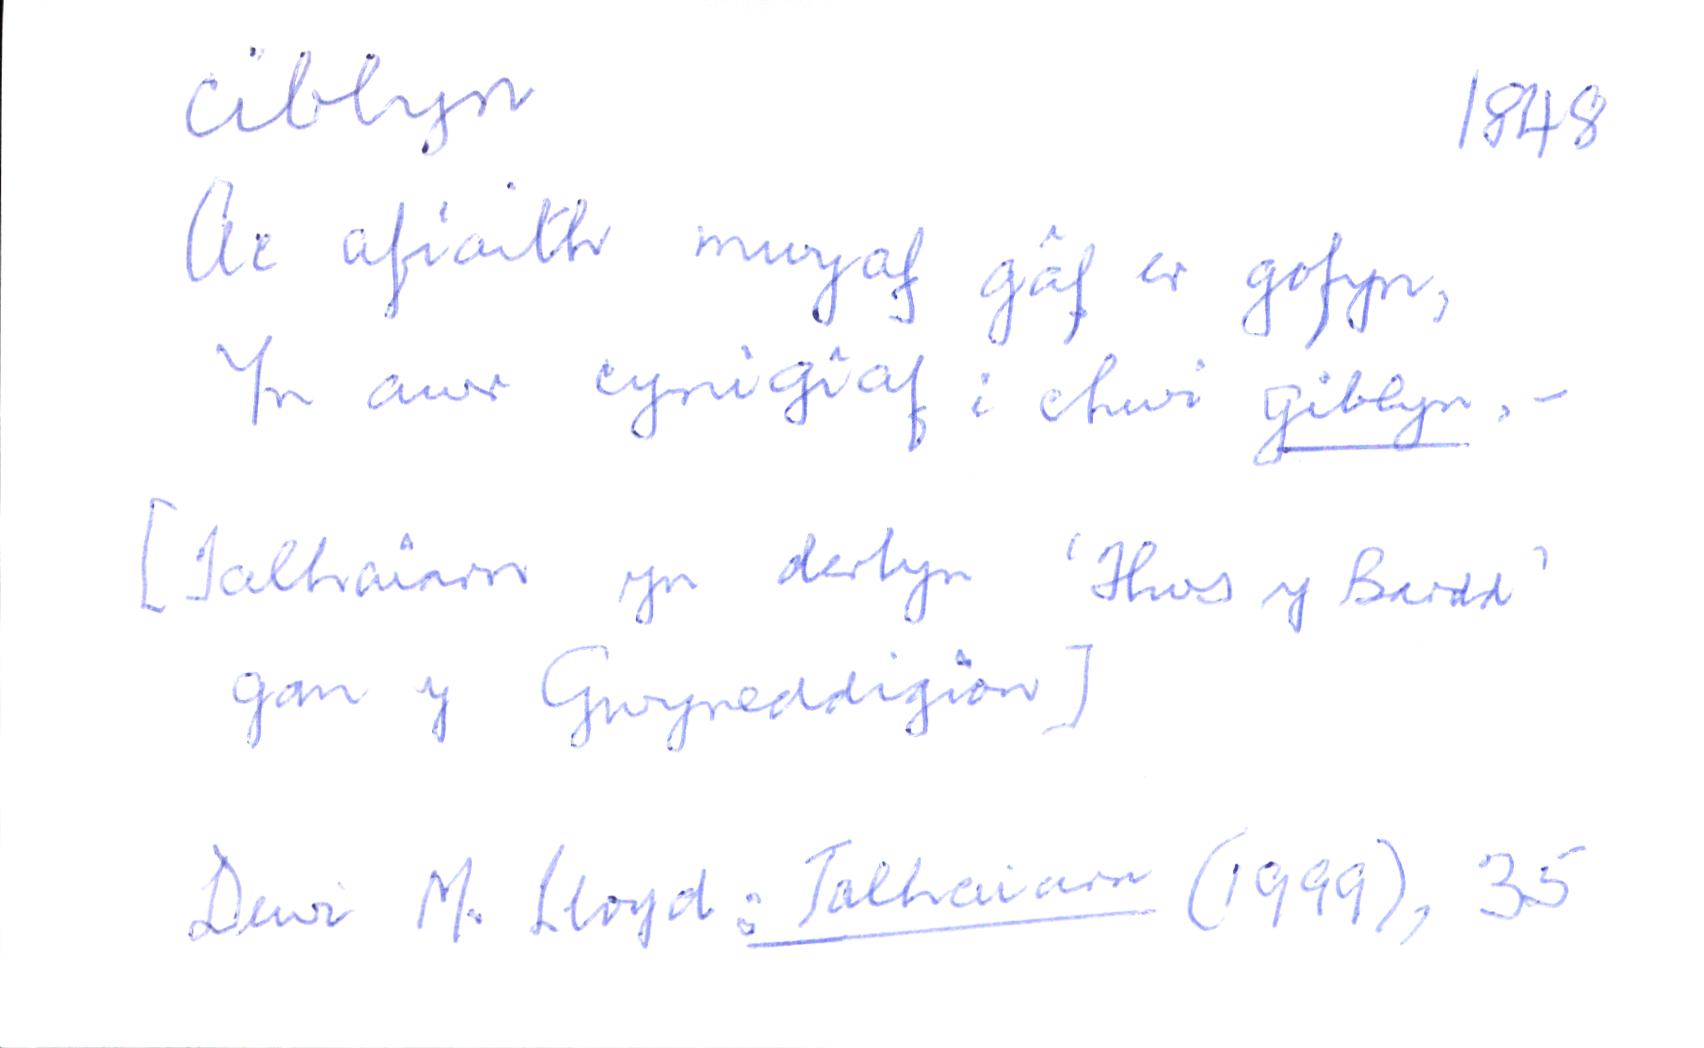 ciblyn 1848
Ac afiaith mwyaf gâf er gofyn,
Yn awr cynigiaf i chwi giblyn, -
[Talhaiarn yn derbyn 'Hws y Bardd'
gan y Gwyneddigion]
Dewi M. Lloyd: Talhaiarn (1999), 35